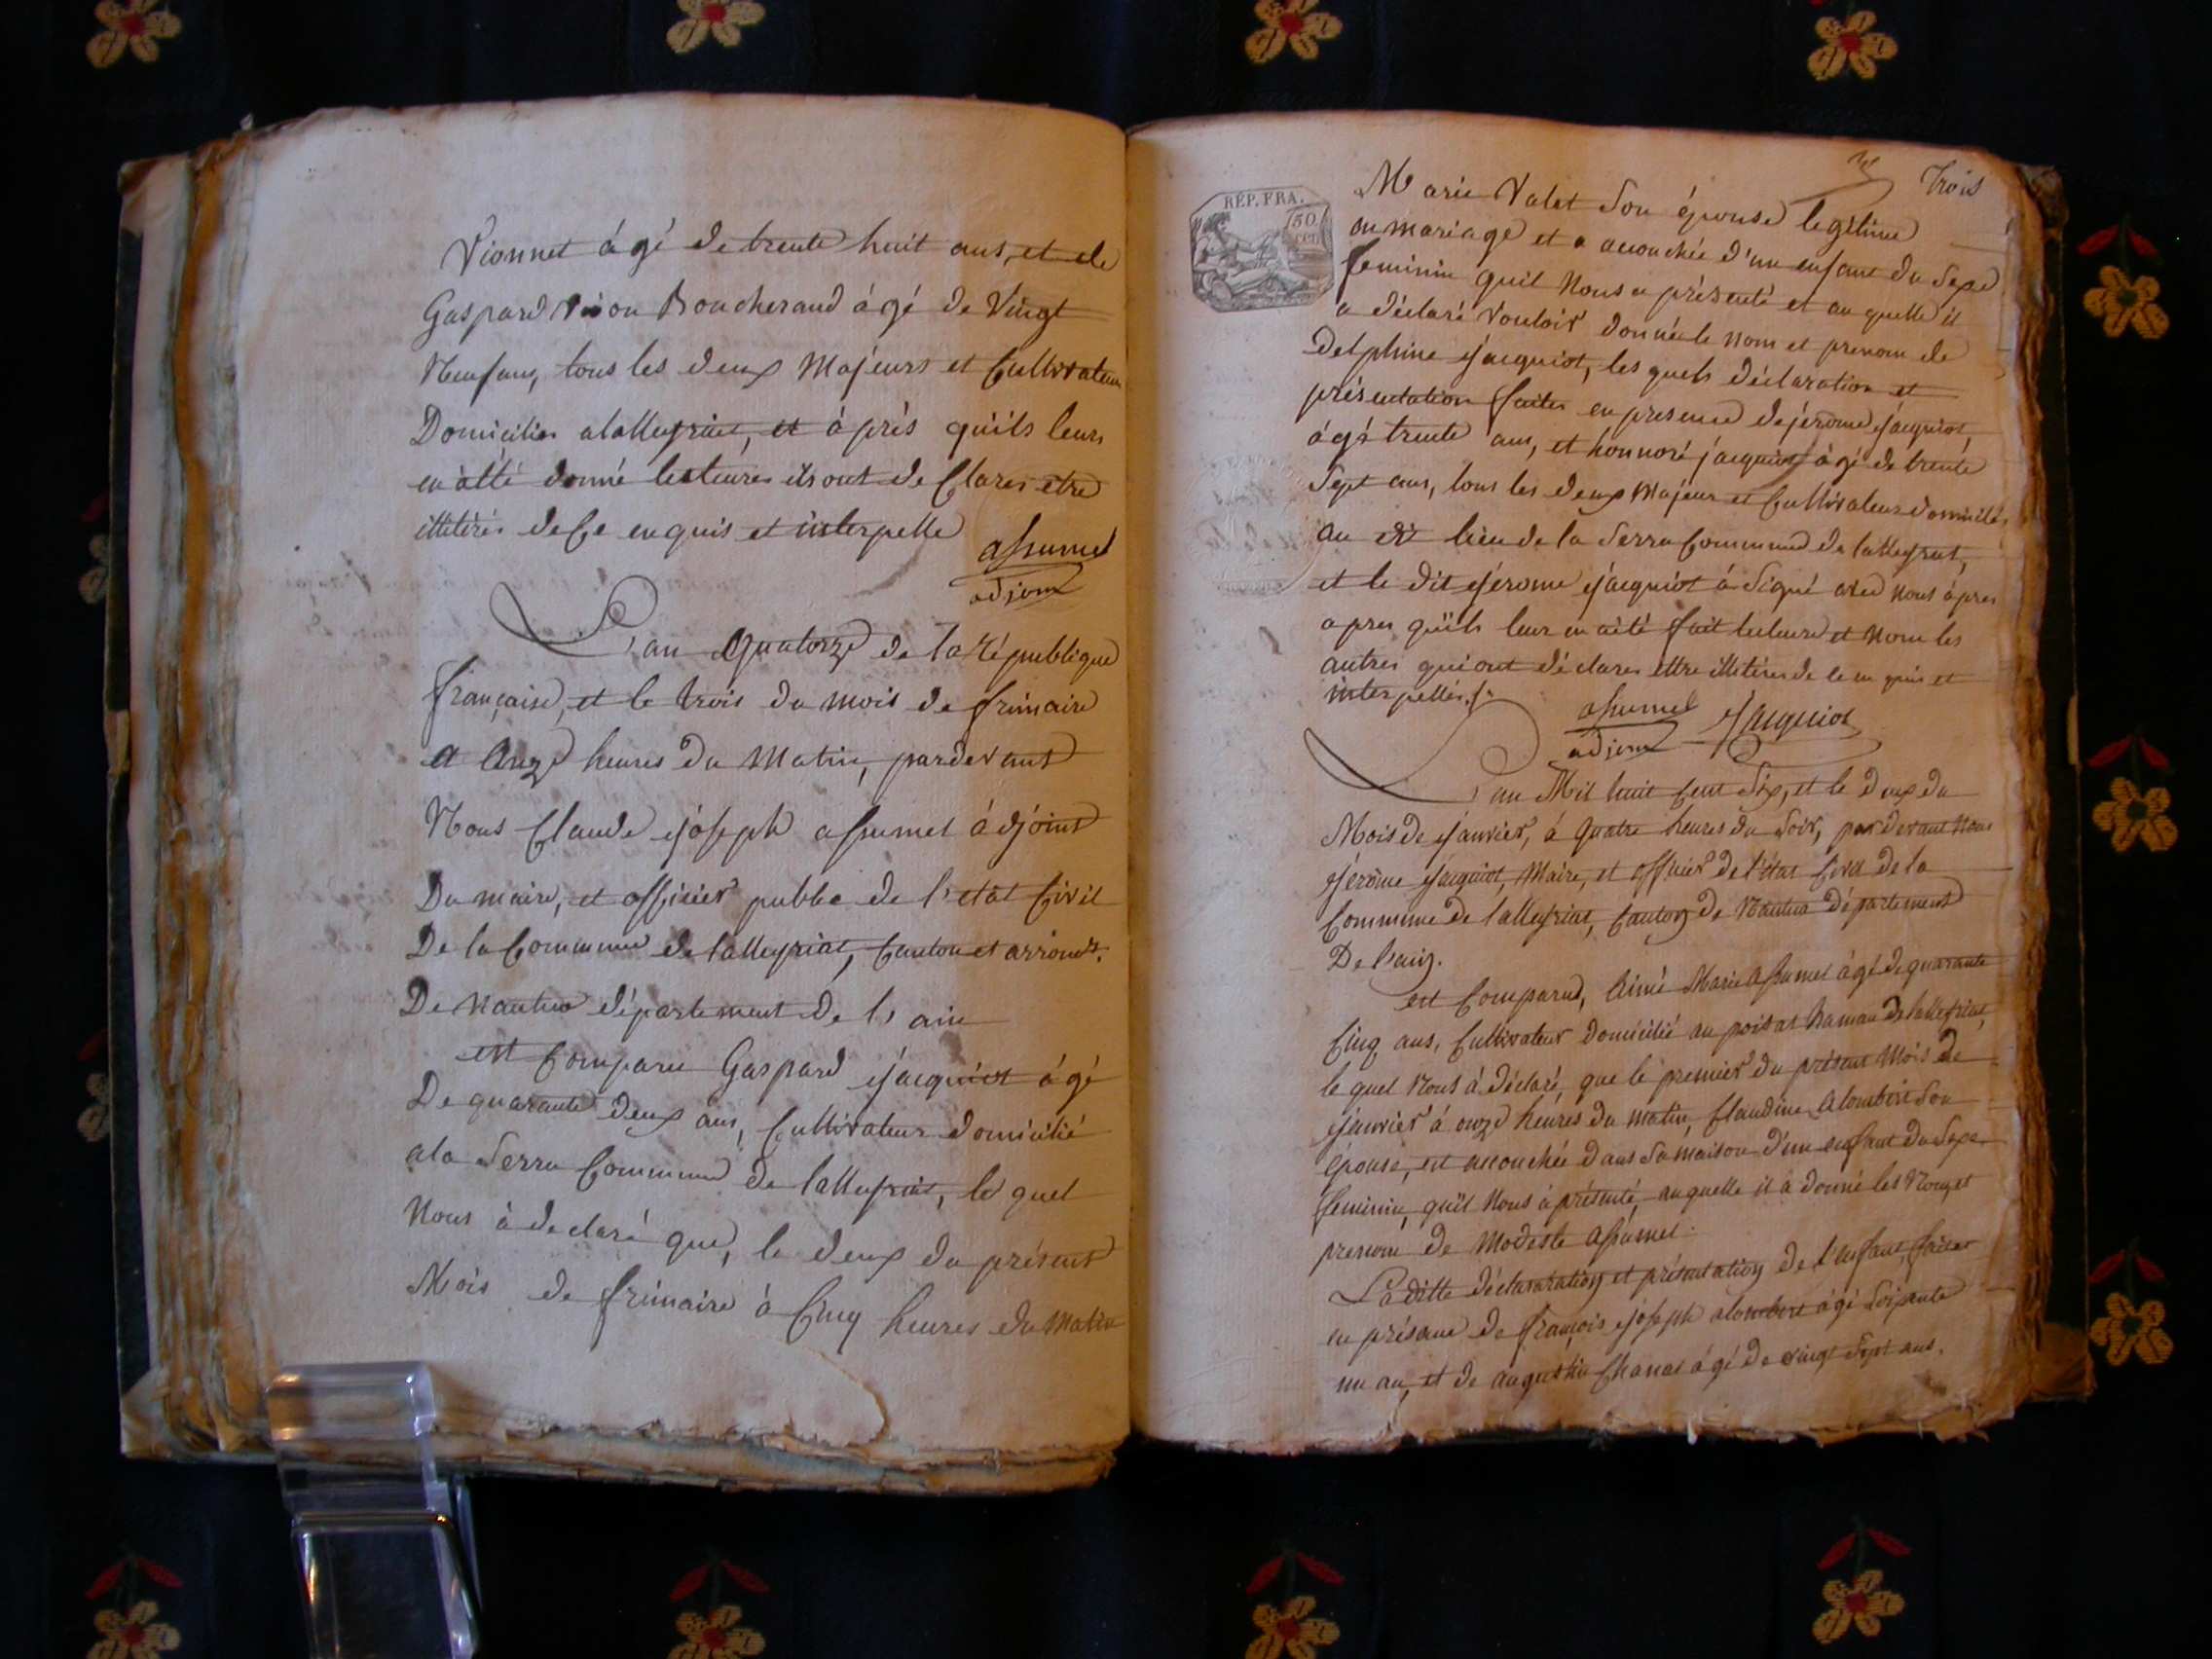 Vionnet âgé de trente huit ans, et de
Gaspard Vion Boucherand âgé de Vingt
Neuf ans, tous les deux Majeurs et Cultivateurs
Domiciliés a lalleyriat, et àprès quïls leurs
en àété donné lecteures ils ont de Clarer etre
illitérés de Ce en quis et interpelle
assumel
adjoint
L'an quatorze de la république
française, et le trois du mois de frimaire
a Onze heures du Matin, pardevant
Nous Claude joseph assumel àdjoint
Du maire, et officier public de l'etat Civil
De la Commune de lalleyriat, Canton et arrondt.
De nantua département de l'ain
est Comparu Gaspard jacquiot âgé
De quarante deux ans, Cultivateur domicilié
a la Serra Commune de lalleyriat, le quel
Nous à declaré que, le deux du présent
Mois de frimaire à Cinq heures du Matin
3 Trois
RÉP. FRA.
50 cen
Marie Valet Son épouse legitime
en mariage et a accouchée d'un enfant du Sexe
feminin quil Nous a présenté et au quelle il
a déclaré Vouloir donnée le nom et prenom de
Delphine jacquiot, les quels déclaration et
présentation faites en presence de jérome jacquiot,
âgé trente ans, et honnoré jacquiot âgé de trente
Sept ans, tous les deux Majeur et Cultivateur domiciliés
au dit lieu de la Serra Commune de lalleyriat,
et le dit jérome jacquiot à Signé avec nous àpres
apres quïls leur en àété fait lecteure et Nom les
autres qui ont déclarer ettre illitérés de ce en quis et
interpellés
assumel jacquiot
adjoint
L'an Mil huit Cent Six, et le deux du
Mois de janvier, à quatre heures du Soir, par devant Nous
jérôme jacquiot, Maire, et officier de l'état Civil de la
Commune de lalleyriat, Canton de Nantua département
De l'ain.
est Comparud, Aimé Marie Assumel âgé de quarante
Cinq ans, Cultivateur domicilié au poisat hamau de lalleyriat,
le quel Nous à déclaré, que le premier du présent Mois de
janvier à onze heures du matin, Claudine Alombert Son
epouse, est accouchée dans Sa maison d'un enfant du Sexe
feminin, quïl Nous à présenté, au quelle il à donné les Nom et
prenom de Modeste Assumel.
La ditte déclararation et présentation de l'enfant, faites
en présence de françois joseph alombert âgé Soixante
un an, et de augustin Chanal âgé de vingt Sept ans.